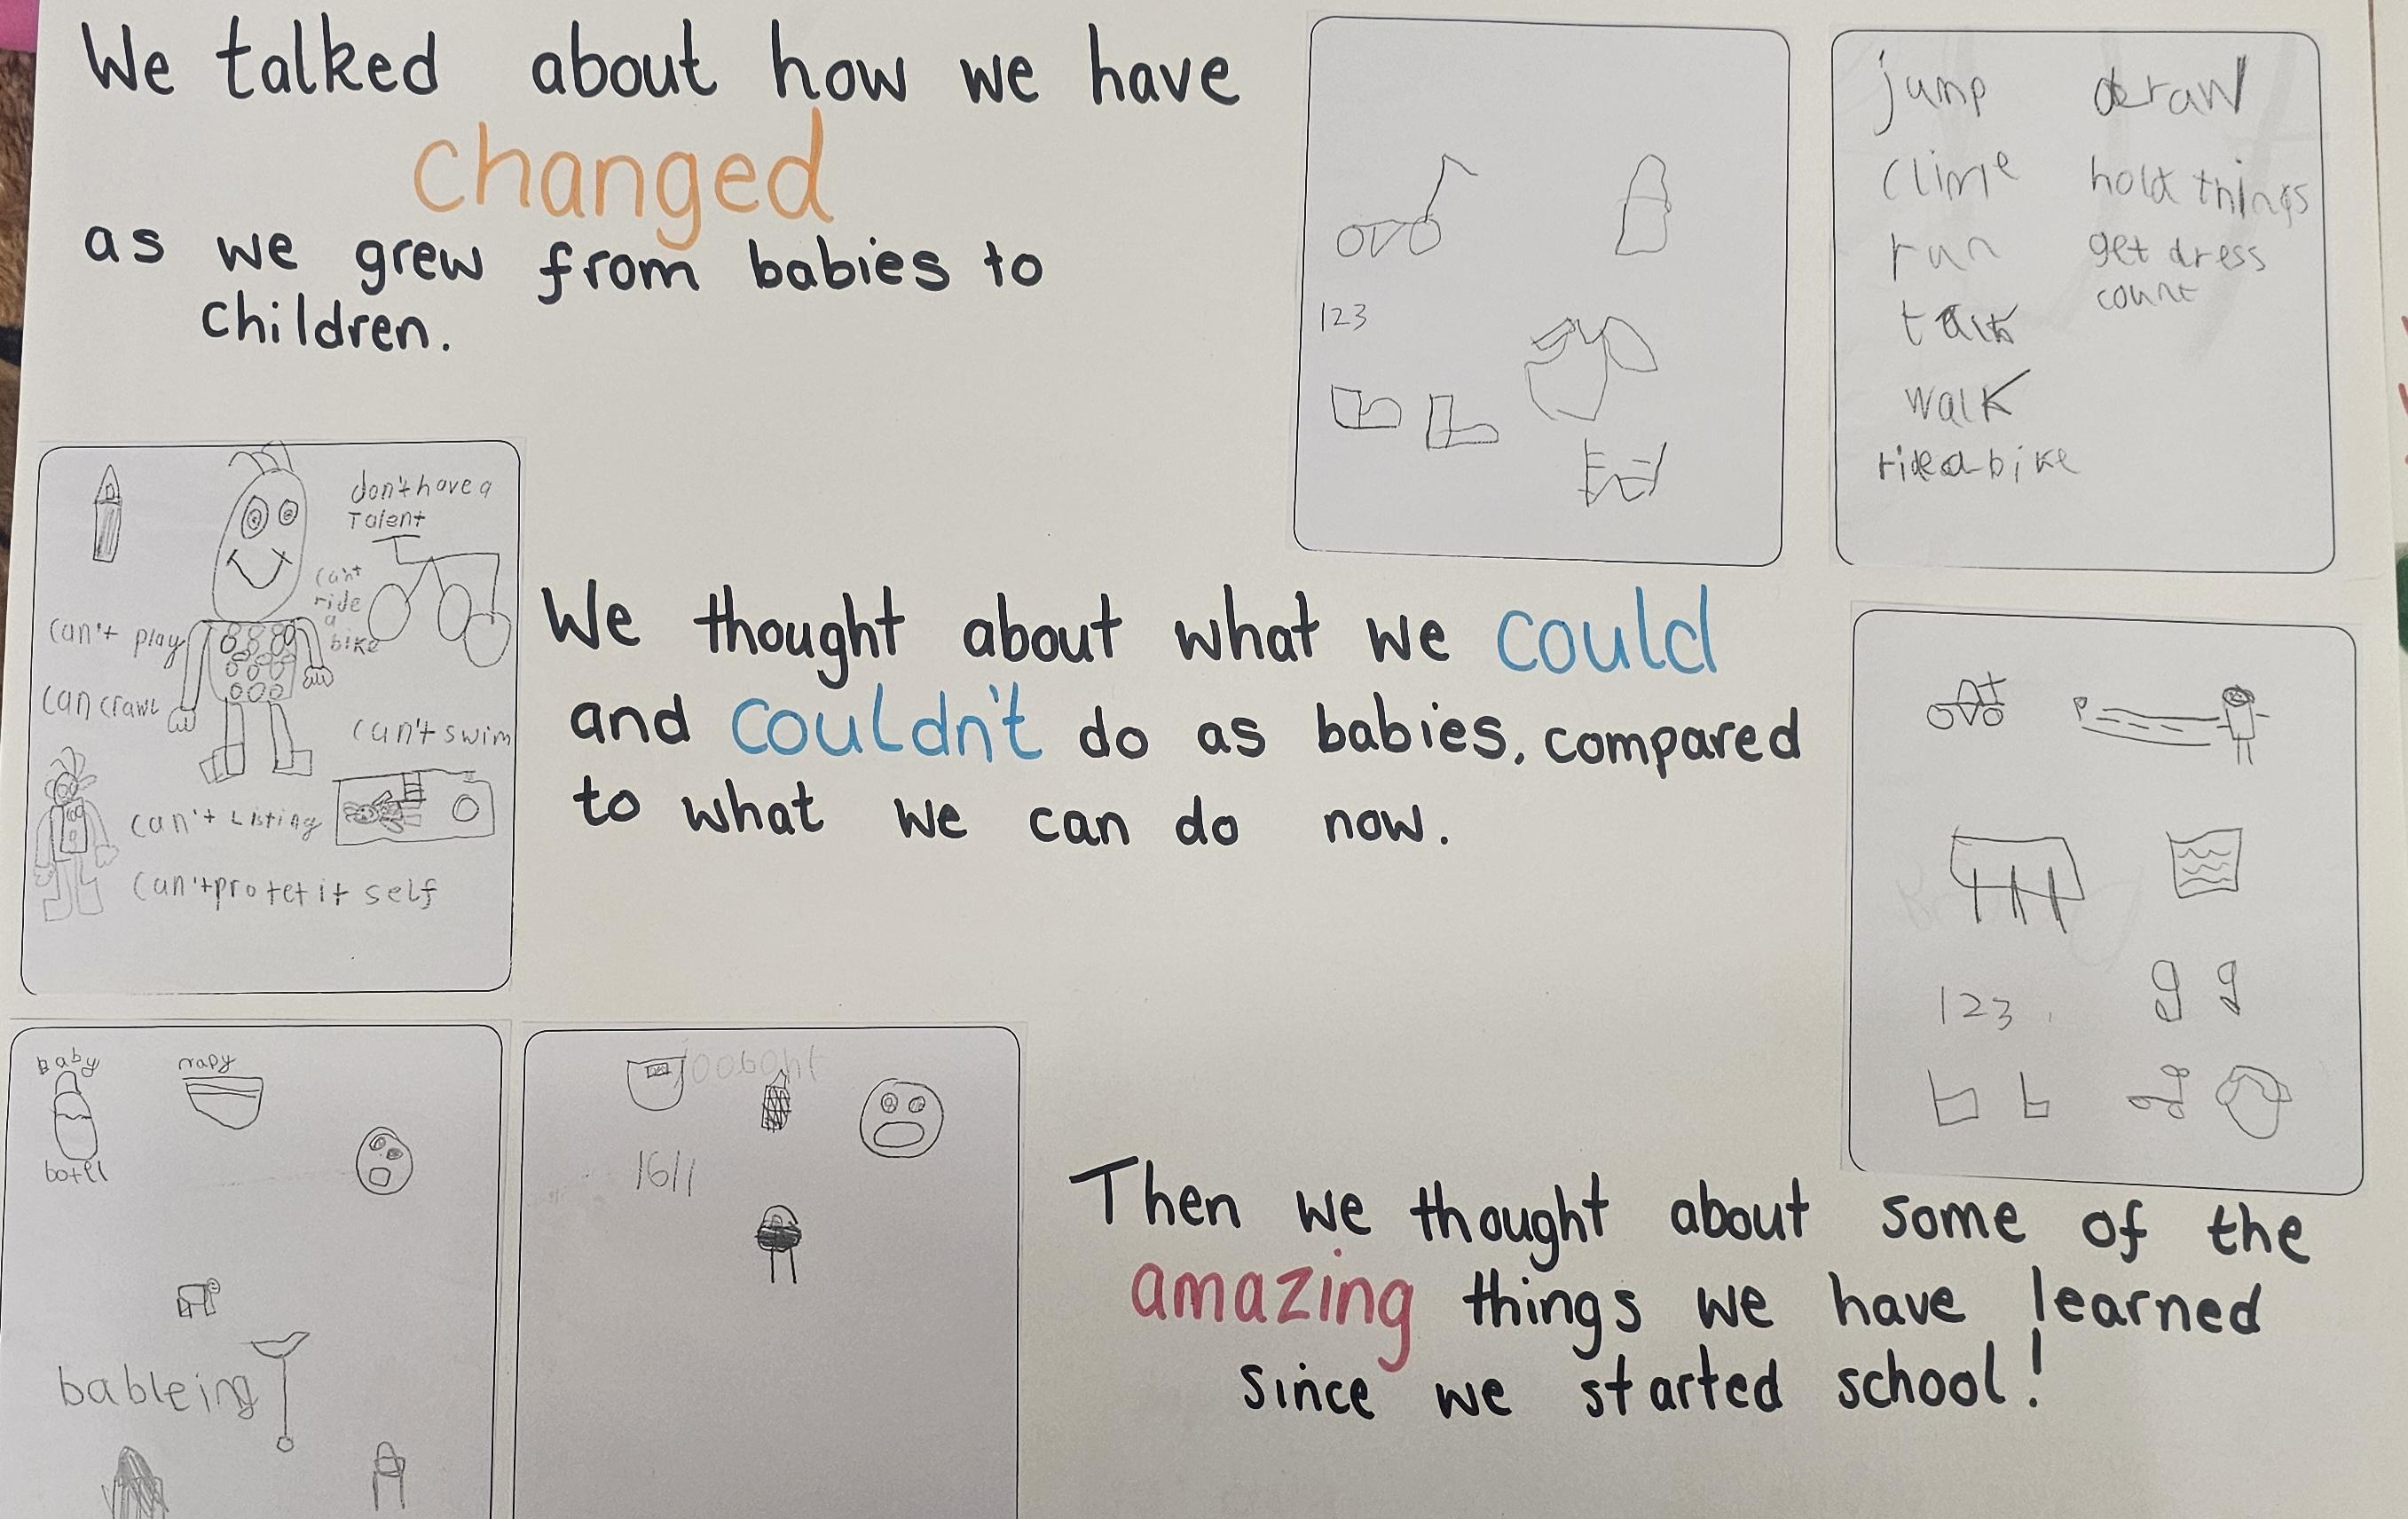 We talked about how we have
changed
as we grew from babies to
children.
123
jump draw
clime hold things
run get dress
count
talk
walk
ride a bike
don't have a
Talent
can't
ride
a
bike
can't play
can crawl
can't swim
can't Listing
can't protet it self
We thought about what we could
and couldn't do as babies, compared
to what we can do now.
123
baby
napy
botel
bableing
1611
Then we thought about some of the
amazing things we have learned
since we started school!